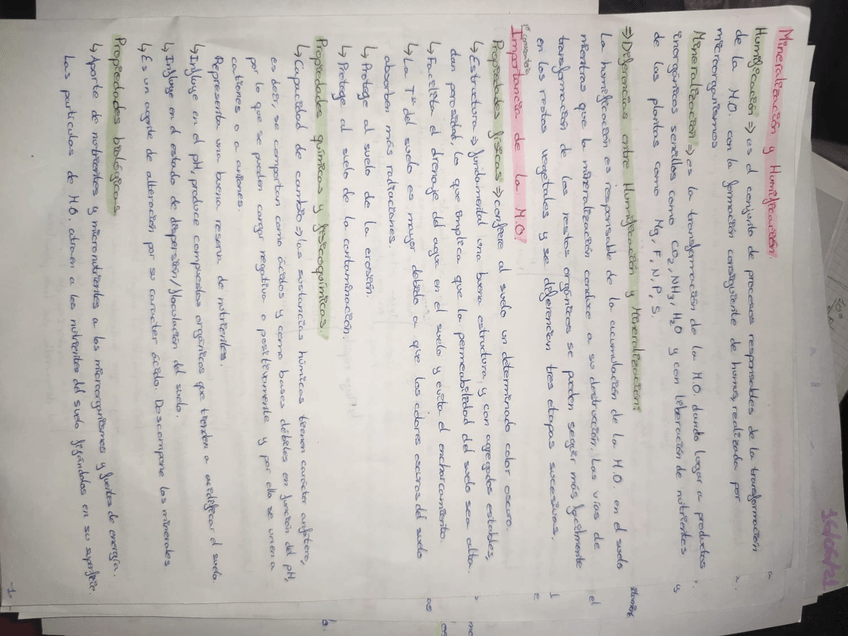 Mineralización y Humificación
Humificación ⇒ es el conjunto de procesos responsables de la transformación
de la M.O. con la formación consiguiente de humus, realizada por
microorganismos
Mineralización ⇒ es la transformación de la M.O. dando lugar a productos
inorgánicos sencillos como CO₂, NH₃, H₂O y con liberación de nutrientes
de las plantas como Mg, F, N, P, S.
⇒ Diferencias entre Humificación y Mineralización:
La humificación es responsable de la acumulación de la M.O. en el suelo
mientras que la mineralización conduce a su destrucción. Las vías de
transformación de los restos orgánicos se pueden seguir más fácilmente
en los restos vegetales y se diferencian tres etapas sucesivas.
Importancia de la M.O?
Propiedades físicas ⇒ confiere al suelo un determinado color oscuro.
↳ Estructura ⇒ fundamental una buena estructura, y con agregados estables,
dan porosidad, lo que implica que la permeabilidad del suelo sea alta.
↳ Facilita el drenaje del agua en el suelo y evita el encharcamiento.
↳ La Tª del suelo es mayor debido a que los colores oscuros del suelo
absorben más radiaciones.
↳ Protege al suelo de la erosión.
↳ Protege al suelo de la contaminación.
Propiedades químicas y fisicoquímicas.
↳ Capacidad de cambio ⇒ las sustancias húmicas tienen carácter anfótero,
es decir, se comportan como ácidos y como bases débiles en función del pH,
por lo que se pueden cargar negativa o positivamente y por ello se unen a
cationes o a aniones.
Representa una buena reserva de nutrientes.
↳ Influye en el pH, produce compuestos orgánicos que tienden a acidificar el suelo
↳ Influye en el estado de dispersión/floculación del suelo.
↳ Es un agente de alteración por su carácter ácido. Descompone los minerales
Propiedades biológicas
↳ Aporte de nutrientes y micronutrientes a los microorganismos y fuentes de energía.
Las partículas de M.O. atraen a los nutrientes del suelo fijándolos en su superficie.
-1-